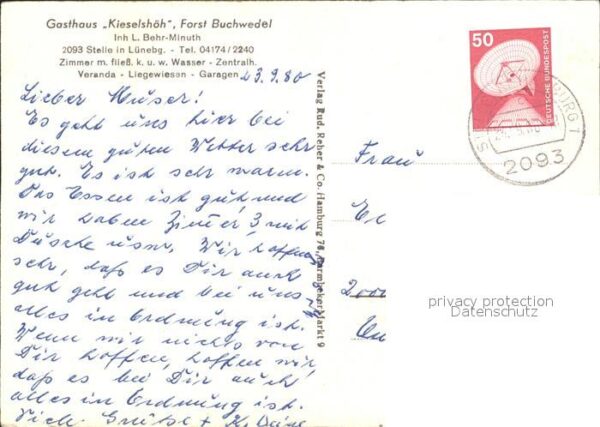 Gasthaus „Kieselshöh", Forst Buchwedel
Inh L. Behr-Minuth
2093 Stelle in Lünebg. - Tel. 04174/2240
Zimmer m. fließ. k. u. w. Wasser - Zentralh.
Veranda - Liegewiesen - Garagen
23.9.80
Lieber Muser!
Es geht uns hier bei
diesem guten Wetter sehr
gut. Es ist sehr warm.
Das Essen ist gut und
wir haben Zimmer 3 mit
Dusche usw. Wir hoffen
sehr, daß es Dir auch
gut geht und bei uns
alles in Ordnung ist.
Wenn wir nichts von
Dir hoffen, hoffen wir,
daß es bei Dir auch
alles in Ordnung ist.
Viele Grüße +
Verlag Rud. Reher & Co. Hamburg 76, Barmbeker Markt 9
50
DEUTSCHE BUNDESPOST
2093
Frau
2000
privacy protection
Datenschutz